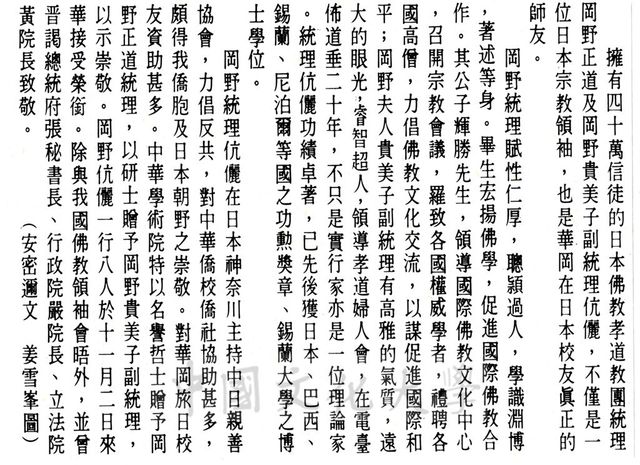 擁有四十萬信徒的日本佛教孝道教團統理
岡野正道及岡野貴美子副統理伉儷，不僅是一
位日本宗教領袖，也是華岡在日本校友眞正的
師友。
岡野統理賦性仁厚，聰穎過人，學識淵博
，著述等身。畢生宏揚佛學，促進國際佛教合
作。其公子輝勝先生，領導國際佛教文化中心
，召開宗教會議，羅致各國權威學者，禮聘各
國高僧，力倡佛教文化交流，以謀促進國際和
平；岡野夫人貴美子副統理有高雅的氣質，遠
大的眼光；睿智超人，領導孝道婦人會，在電臺
佈道垂二十年，不只是實行家亦是一位理論家
。統理伉儷功績卓著，已先後獲日本、巴西、
錫蘭、尼泊爾等國之功勳獎章、錫蘭大學之博
士學位。
岡野統理伉儷在日本神奈川主持中日親善
協會，力倡反共，對中華僑校僑社協助甚多，
頗得我僑胞及日本朝野之崇敬。對華岡旅日校
友資助甚多。中華學術院特以名譽哲士贈予岡
野正道統理，以研士贈予岡野貴美子副統理，
以示崇敬。岡野伉儷一行八人於十一月二日來
華接受榮銜。除與我國佛教領袖會晤外，並曾
晉謁總統府張秘書長、行政院嚴院長、立法院
黃院長致敬。
（安密邇文　姜雪峯圖）
中國文化大學